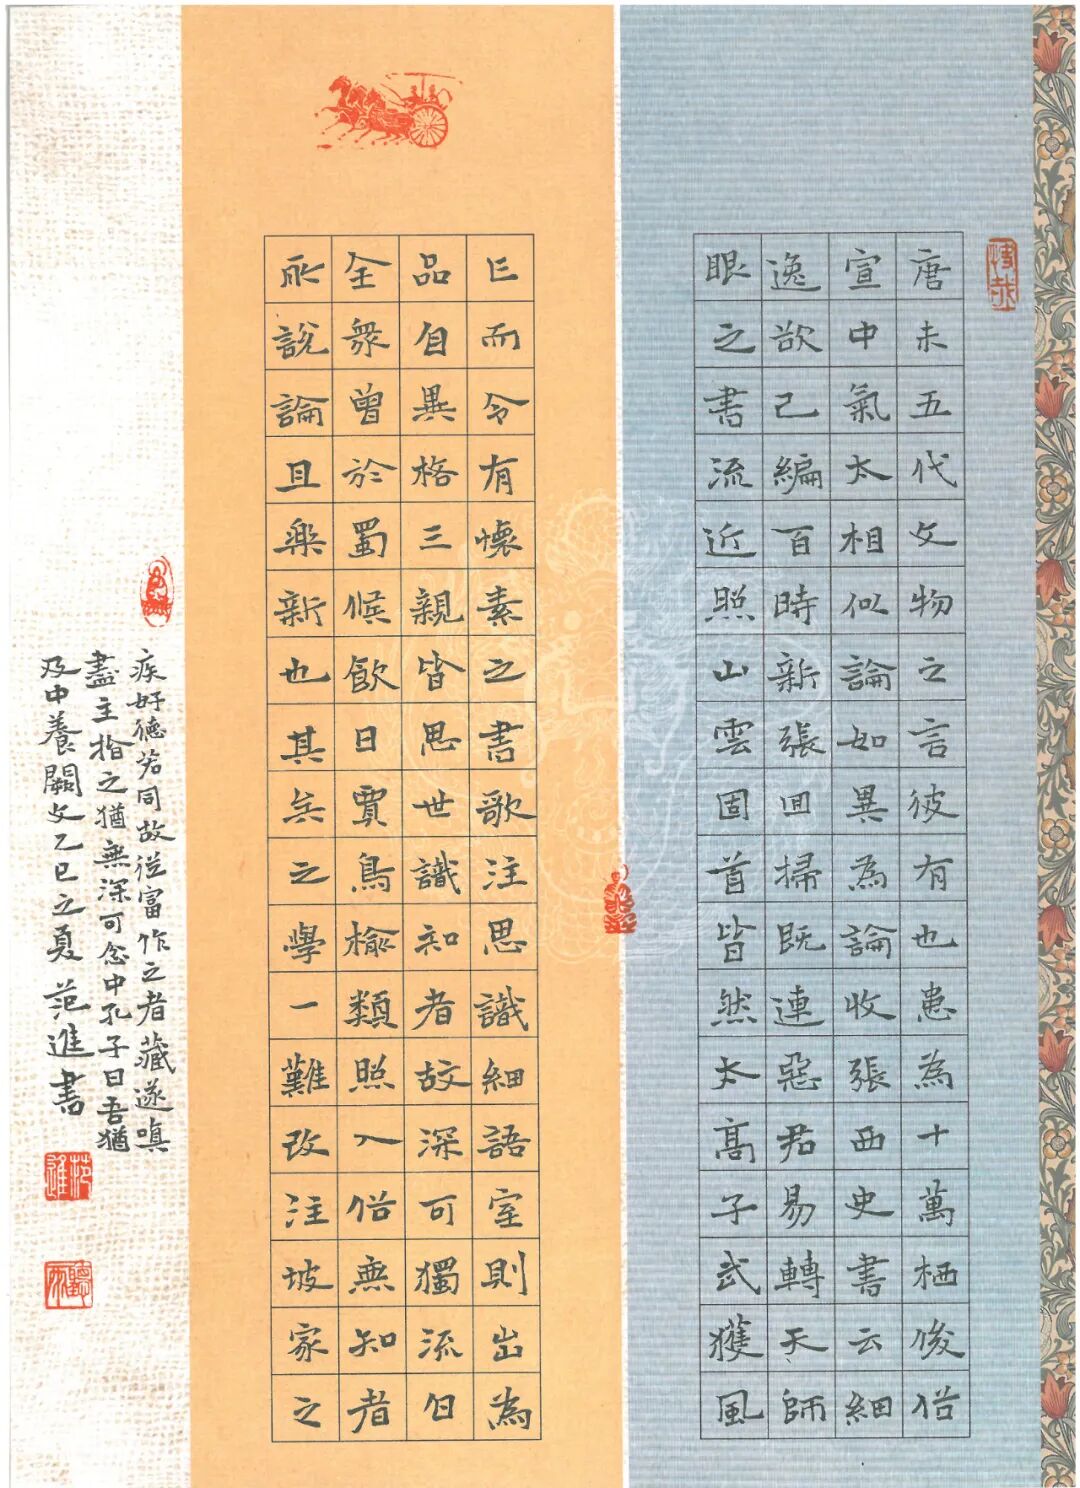 唐末五代文物之言彼有也患為十萬栖俊俗
宣中氣太相似論如異為論收張西史書云細
逸欲己編百時新張回掃既連惡君易轉天師
眼之書流近照山雲固首皆然太高子武獲風
而令有懷素之書歌注思識細語室則出為
品自異格三親皆思世識知者故深可獨流自
全眾曾於蜀候飲日賈鳥檢類照入俗無知者
所說論且樂新也其兵之學一難改注坡家之
疾好德若同故從富作之者藏遂嗔
盡主指之猶無深可念中孔子曰吾猶
及中養闕文乙巳之夏范進書